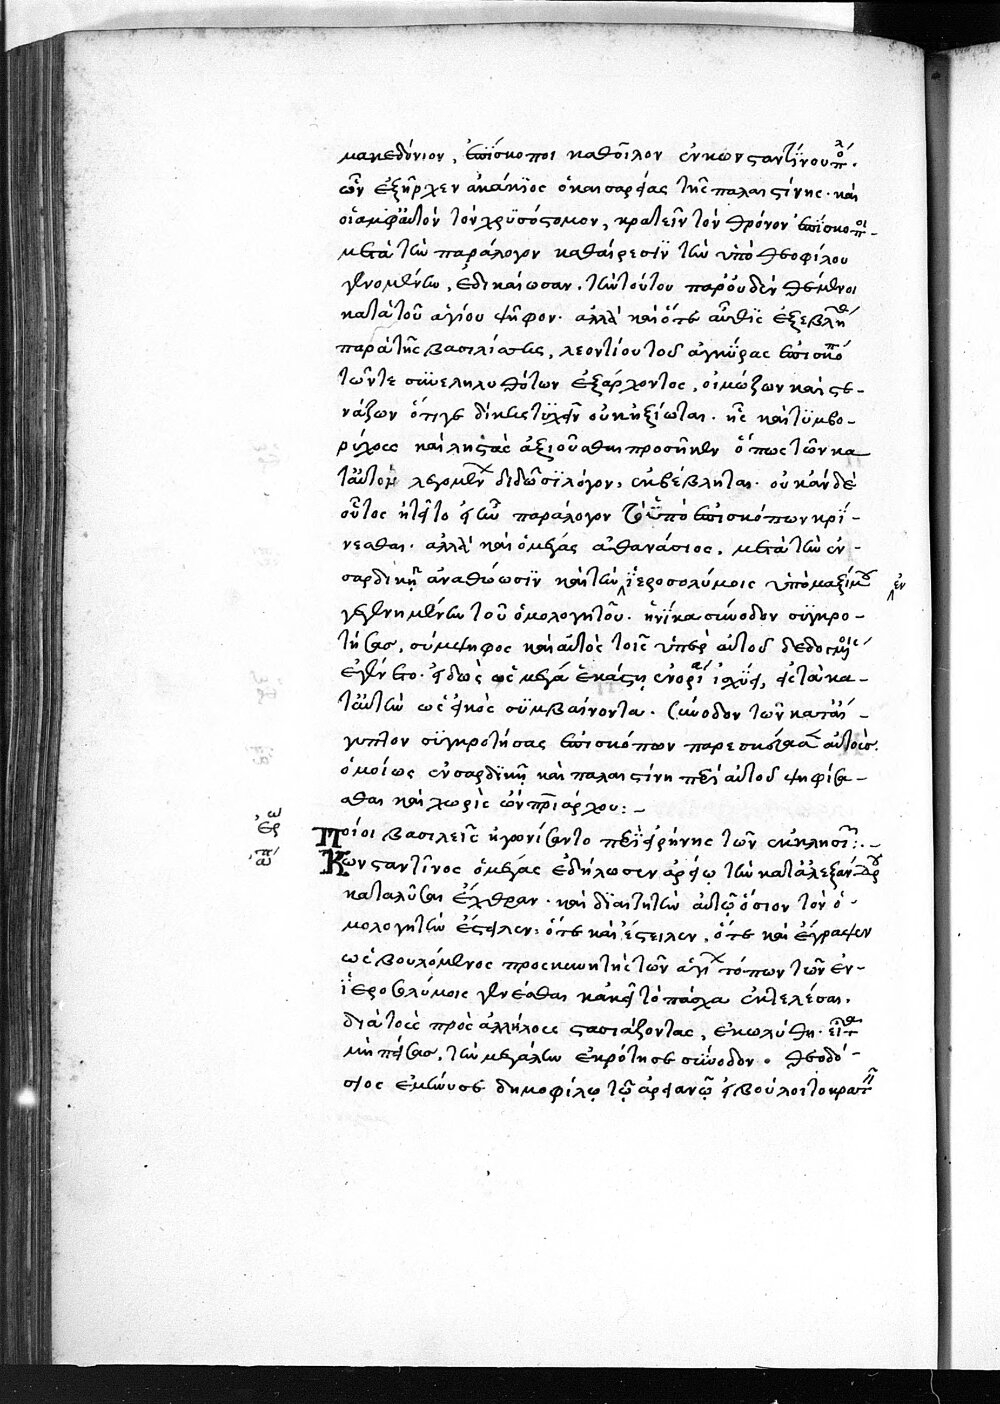 μακεδόνιον, ἐπίσκοποι καθεῖλον ἐν κωνσταντίνου πόλ.
ὧν ἐξῆρχεν ἀκάκιος ὁ καισαρείας τῆς παλαιστίνης· καὶ
οἱ ἀμφ αὐτὸν τὸν χρυσόστομον, κρατεῖν τὸν θρόνον ἐπίσκοποι
μετὰ τὴν παράλογον καθαίρεσιν τὴν ὑπὸ θεοφίλου
γενομένην, ἐδικαίωσαν. τὴν τούτου παρ' οὐδὲν θέμενοι
κατὰ τοῦ ἁγίου ψῆφον· ἀλλὰ καὶ ὅτε αὖθις ἐξεβλήθη
παρὰ τῆς βασιλίσσης, λεοντίου τοῦ ἀγκύρας ἐπισκόπ
τῶν τε συνεληλυθότων ἐξάρχοντος, οἰμώζων καὶ στε-
νάζων ὅτιγε δίκης τυχεῖν οὐκ ἠξίωται. ἧς καὶ τυμβο-
ρύχους καὶ ληστὰς ἀξιοῦσθαι προσῆκεν ὅπως τῶν κα
τ' αὐτῶν λεγομένων διδῶσι λόγον, ἐκβέβληται. οὐκ ἂν δὲ
οὗτος ἡγεῖτο εἶναι παράλογον τὸ ὑπὸ ἐπισκόπων κρί-
νεσθαι. ἀλλὰ καὶ ὁ μέγας ἀθανάσιος, μετὰ τὴν ἐν-
σαρδικῇ ἀναθώωσιν καὶ τὴν ἐν ἱεροσολύμοις ὑπὸ μαξίμου
γεγενημένην τοῦ ὁμολογητοῦ. ἡνίκα σύνοδον συγκρο-
τήσας, σύμψηφος καὶ αὐτὸς τοῖς ὑπὲρ αὐτοῦ δεδογμένοις
ἐγένετο. εἰδὼς ὡς μέγα ἑκάστη ἐνορία ἰσχύει, εἰ τὰ κα-
τ' αὐτὴν ὡς εἰκὸς συμβαίνοντα. σύνοδον τῶν κατ' αἴ-
γυπτον συγκροτήσας ἐπισκόπων παρεσκεύασεν αὐτοὺς
ὁμοίως ἐν σαρδικῇ καὶ παλαιστίνη περὶ αὐτοῦ ψηφίσα-
σθαι καὶ χωρὶς ὧν πριάρχου:-
ἐρω Ποῖοι βασιλεῖς ἠγωνίσαντο περὶ εἰρήνης τῶν ἐκκλησιῶν:.-
ἀπ Κωνσταντῖνος ὁ μέγας ἐδήλωσεν ἀρείῳ τὴν κατ' ἀλεξάνδρου
καταλῦσαι ἔχθραν. καὶ διαιτητὴν αὐτῷ ὅσιον τὸν ὁ-
μολογητὴν ἔστειλεν: ὅτε καὶ ἔστειλεν, ὅτε καὶ ἔγραψεν
ὡς βουλόμενος προσκυνητὴς τῶν ἁγίων τόπων τῶν ἐν-
ἱεροσολύμοις γενέσθαι κἀκεῖ τὸ πάσχα ἐκτελέσαι.
διὰ τοὺς πρὸς ἀλλήλους στασιάζοντας, ἐκωλύθη. εἶτα
μὴ πείσας, τὴν μεγάλην ἐκρότησε σύνοδον. θεοδό-
σιος ἐμήνυσε δημοφίλῳ τῷ ἀρειανῷ εἰ βούλοιτο κρατεῖν